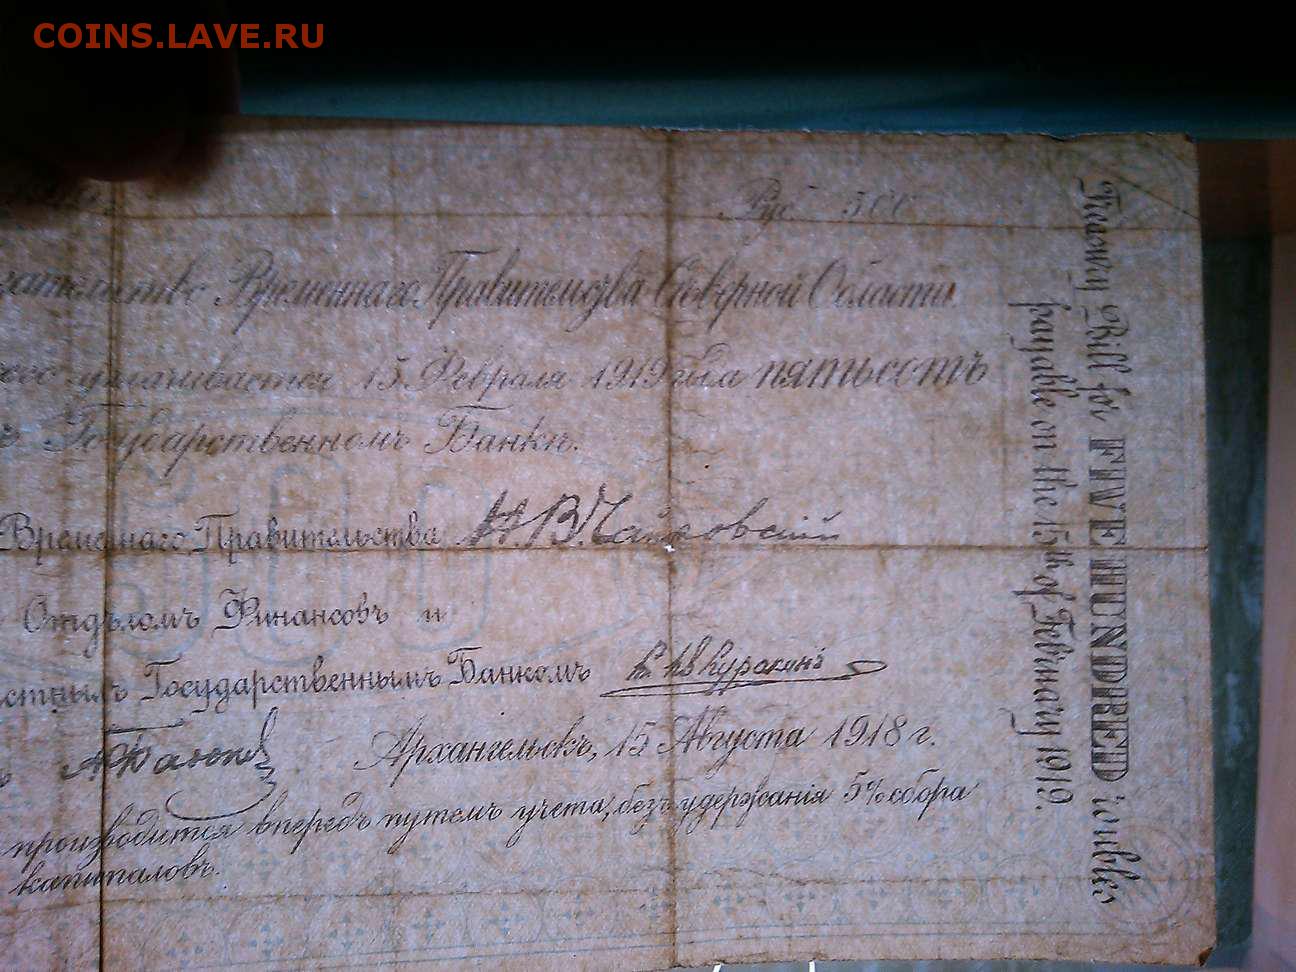 COINS.LAVE.RU
Руб 500
зательство Временнаго Правительства Сѣверной Области.
уплачивается 15 Февраля 1919 года пятьсотъ
ъ Государственномъ Банкѣ.
Временнаго Правительства Н.В.Чайковскій
Отдѣломъ Финансовъ и
стнымъ Государственнымъ Банкомъ Куракинъ
Архангельскъ, 15 Августа 1918 г.
производится впередъ путемъ учета, безъ удержанія 5% сбора
капиталовъ.
Treasury Bill for FIVE HUNDRED roubles
payable on the 15th of February 1919.